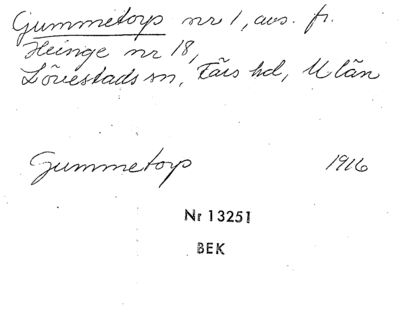 Gummetorp nr 1, avs. fr.
Heinge nr 18,
Lövestads sn, Färs hd, M län
Gummetorp 1916
Nr 13251
BEK